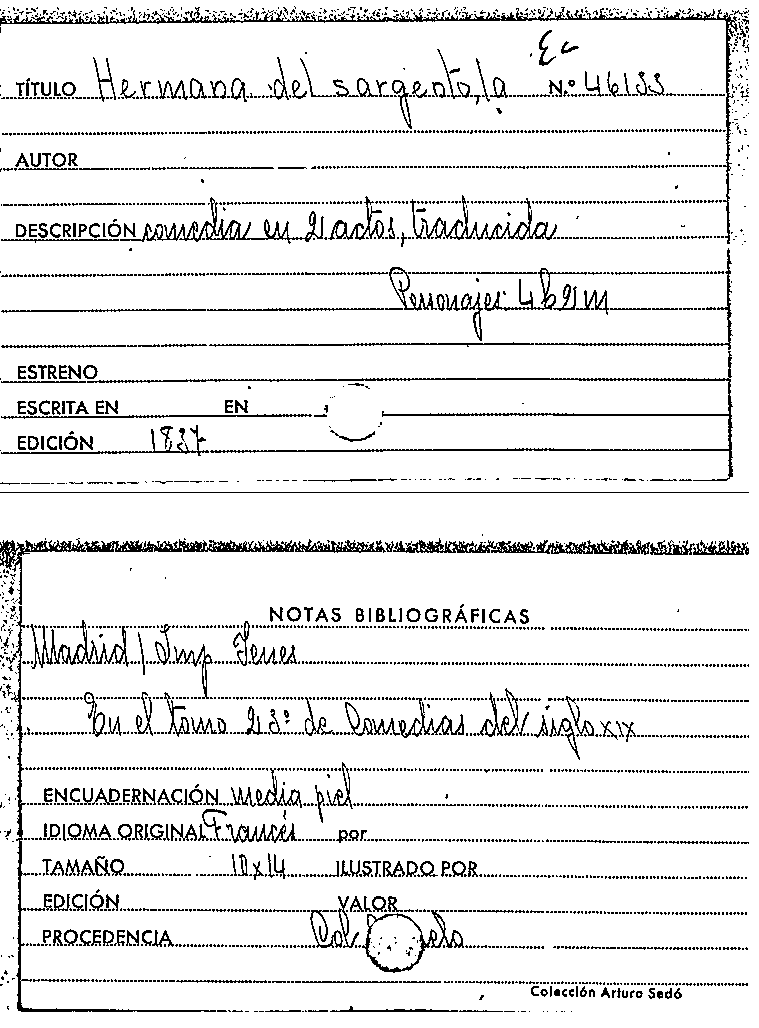 TÍTULO Hermana del sargento, la N.º 46133
AUTOR
DESCRIPCIÓN comedia en 2 actos, traducida
Personajes: 4 h 2 m
ESTRENO
ESCRITA EN EN
EDICIÓN 1837
NOTAS BIBLIOGRÁFICAS
Madrid / Imp Yenes
En el tomo 23º de Comedias del siglo XIX
ENCUADERNACIÓN media piel
IDIOMA ORIGINAL Francés por
TAMAÑO 10x14 ILUSTRADO POR
EDICIÓN VALOR
PROCEDENCIA Col
Colección Arturo Sedó